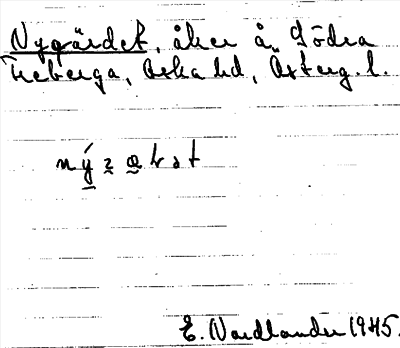 Nygärdet, åker å Södra
Freberga, Aska hd, Österg. l.
E. Nordlander 1945.